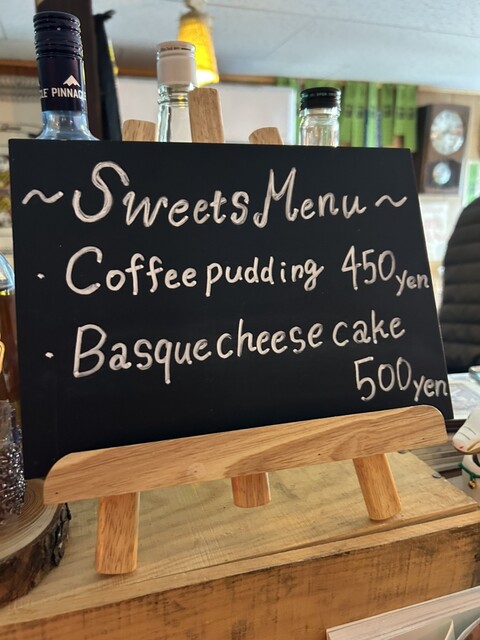 PINNAC
~Sweets Menu~
· Coffee pudding 450yen
· Basque cheese cake
500yen